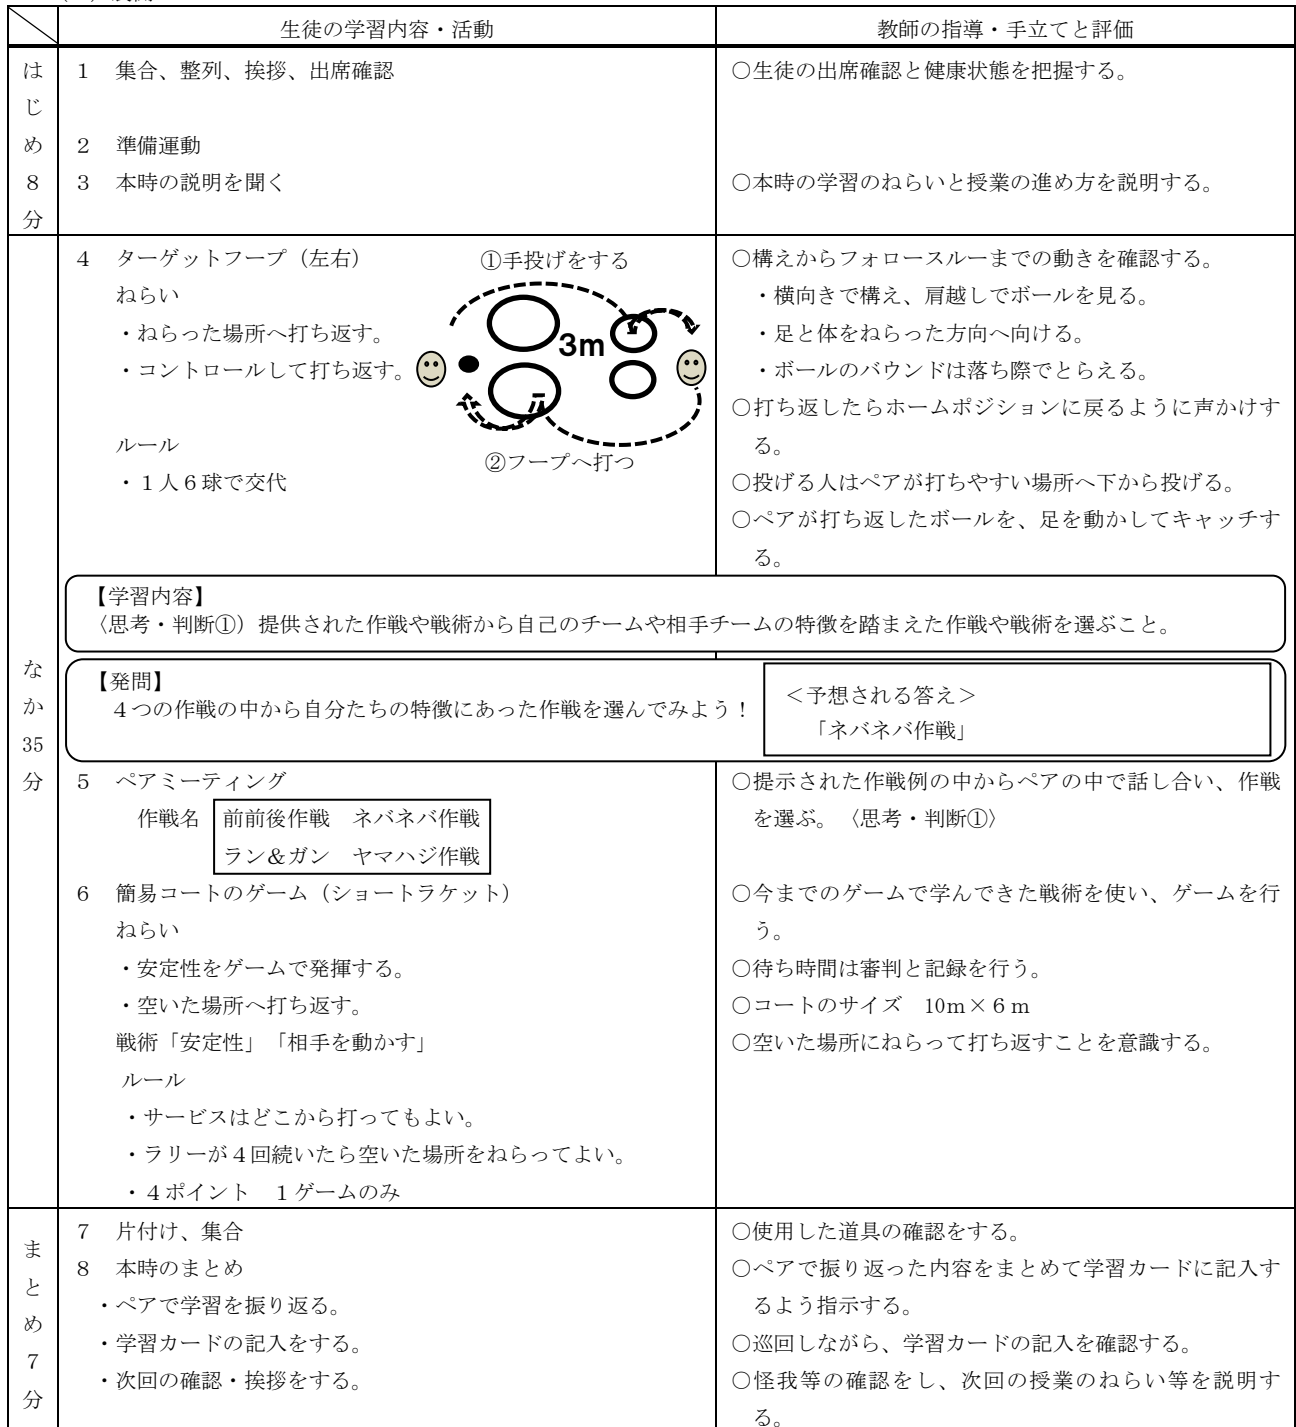 生徒の学習内容・活動
教師の指導・手立てと評価
はじめ8分
1 集合、整列、挨拶、出席確認
○生徒の出席確認と健康状態を把握する。
2 準備運動
3 本時の説明を聞く
○本時の学習のねらいと授業の進め方を説明する。
なか35分
4 ターゲットフープ(左右)
①手投げをする
ねらい
・ねらった場所へ打ち返す。
3m
・コントロールして打ち返す。
ルール
②フープへ打つ
・1人6球で交代
○構えからフォロースルーまでの動きを確認する。
・横向きで構え、肩越しでボールを見る。
・足と体をねらった方向へ向ける。
・ボールのバウンドは落ち際でとらえる。
○打ち返したらホームポジションに戻るように声かけす
る。
○投げる人はペアが打ちやすい場所へ下から投げる。
○ペアが打ち返したボールを、足を動かしてキャッチす
る。
【学習内容】
〈思考・判断①)提供された作戦や戦術から自己のチームや相手チームの特徴を踏まえた作戦や戦術を選ぶこと。
【発問】
4つの作戦の中から自分たちの特徴にあった作戦を選んでみよう!
<予想される答え>
「ネバネバ作戦」
5 ペアミーティング
作戦名
前前後作戦 ネバネバ作戦
ラン&ガン ヤマハジ作戦
○提示された作戦例の中からペアの中で話し合い、作戦
を選ぶ。〈思考・判断①〉
6 簡易コートのゲーム(ショートラケット)
ねらい
・安定性をゲームで発揮する。
・空いた場所へ打ち返す。
戦術「安定性」「相手を動かす」
ルール
・サービスはどこから打ってもよい。
・ラリーが4回続いたら空いた場所をねらってよい。
・4ポイント 1ゲームのみ
○今までのゲームで学んできた戦術を使い、ゲームを行
う。
○待ち時間は審判と記録を行う。
○コートのサイズ 10m×6m
○空いた場所にねらって打ち返すことを意識する。
まとめ7分
7 片付け、集合
8 本時のまとめ
・ペアで学習を振り返る。
・学習カードの記入をする。
・次回の確認・挨拶をする。
○使用した道具の確認をする。
○ペアで振り返った内容をまとめて学習カードに記入す
るよう指示する。
○巡回しながら、学習カードの記入を確認する。
○怪我等の確認をし、次回の授業のねらい等を説明す
る。